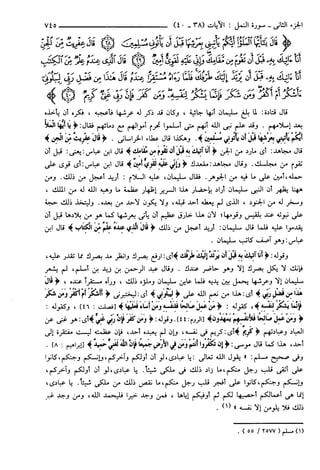 الجزء الثانى - سورة النمل : الآيات (٣٨ - ٤٠) ٧٤٥
﴿ قَالَ يَا أَيُّهَا الْمَلَأُ أَيُّكُمْ يَأْتِينِي بِعَرْشِهَا قَبْلَ أَن يَأْتُونِي مُسْلِمِينَ قَالَ عِفْرِيتٌ مِّنَ الْجِنِّ
أَنَا آتِيكَ بِهِ قَبْلَ أَن تَقُومَ مِن مَّقَامِكَ وَإِنِّي عَلَيْهِ لَقَوِيٌّ أَمِينٌ قَالَ الَّذِي عِندَهُ عِلْمٌ مِّنَ الْكِتَابِ
أَنَا آتِيكَ بِهِ قَبْلَ أَن يَرْتَدَّ إِلَيْكَ طَرْفُكَ فَلَمَّا رَآهُ مُسْتَقِرًّا عِندَهُ قَالَ هَذَا مِن فَضْلِ رَبِّي لِيَبْلُوَنِي
أَأَشْكُرُ أَمْ أَكْفُرُ وَمَن شَكَرَ فَإِنَّمَا يَشْكُرُ لِنَفْسِهِ وَمَن كَفَرَ فَإِنَّ رَبِّي غَنِيٌّ كَرِيمٌ ﴾
قال قتادة: لما بلغ سليمان أنها جائية ، وكان قد ذكر له عرشها فأعجبه ، فكره أن يأخذه
بعد إسلامهم . وقد علم نبى الله أنهم متى أسلموا تحرم أموالهم مع دمائهم فقال: ﴿ يا أيها الملأ
أيكم يأتيني بعرشها قبل أن يأتوني مسلمين ﴾ . وهكذا قال عطاء الخراسانى . ﴿ قال عفريت من الجن ﴾
قال مجاهد: أى مارد من الجن ﴿ أنا آتيك به قبل أن تقوم من مقامك ﴾ قال ابن عباس: يعنى: قبل أن
تقوم من مجلسك. وقال مجاهد: مقعدك ﴿ وإني عليه لقوي أمين ﴾ قال ابن عباس: أى قوى على
حمله، أمين على ما فيه من الجوهر. فقال سليمان، عليه السلام : أريد أعجل من ذلك. ومن
هنا يظهر أن النبى سليمان أراد بإحضار هذا السرير إظهار عظمة ما وهبه الله له من الملك ،
وسخر له من الجنود ، الذى لم يعطه أحد قبله، ولا يكون لأحد من بعده. وليتخذ ذلك حجة
على نبوته عند بلقيس وقومها؛ لأن هذا خارق عظيم أن يأتى بعرشها كما هو من بلادها قبل أن
يقدموا عليه فلما قال سليمان: أريد أعجل من ذلك ﴿ قال الذي عنده علم من الكتاب ﴾ قال ابن
عباس: وهو آصف كاتب سليمان .
وقوله: ﴿ أنا آتيك به قبل أن يرتد إليك طرفك ﴾ أى: ارفع بصرك وانظر مد بصرك مما تقدر عليه،
فإنك لا يكل بصرك إلا وهو حاضر عندك . وقال عبد الرحمن بن زيد بن أسلم، لم يشعر
سليمان إلا وعرشها يحمل بين يديه فلما عاين سليمان وملؤه ذلك ، ورآه مستقراً عنده ، ﴿ قال
هذا من فضل ربي ﴾ أى: هذا من نعم الله على ﴿ ليبلوني ﴾ أى: ليختبرنى ﴿ أأشكر أم أكفر ومن شكر
فإنما يشكر لنفسه ﴾، كقوله : ﴿ من عمل صالحا فلنفسه ومن أساء فعليها ﴾ [فصلت :٤٦] ، وكقوله :
﴿ ومن عمل صالحا فلأنفسهم يمهدون ﴾ [الروم:٤٤]. وقوله: ﴿ ومن كفر فإن ربي غني ﴾ أى:هو غنى عن
العباد وعبادتهم ﴿ كريم ﴾ أى: كريم فى نفسه، وإن لم يعبده أحد، فإن عظمته ليست مفتقرة إلى
أحد، هذا كما قال موسى: ﴿ إن تكفروا أنتم ومن في الأرض جميعا فإن الله لغني حميد ﴾ [إبراهيم : ٨] .
وفى صحيح مسلم: « يقول الله تعالى :يا عبادى،لو أن أولكم وآخركم، وإنسكم وجنكم،كانوا
على أتقى قلب رجل منكم،ما زاد ذلك فى ملكى شيئاً. يا عبادى،لو أن أولكم وآخركم،
وإنسكم وجنكم،كانوا على أفجر قلب رجل منكم،ما نقص ذلك من ملكى شيئاً. يا عبادى،
إنما هى أعمالكم أحصيها لكم ثم أوفيكم إياها ، فمن وجد خيراً فليحمد الله، ومن وجد غير
ذلك فلا يلومن إلا نفسه » (١) .
(١) مسلم (٢٥٧٧ / ٥٥) .